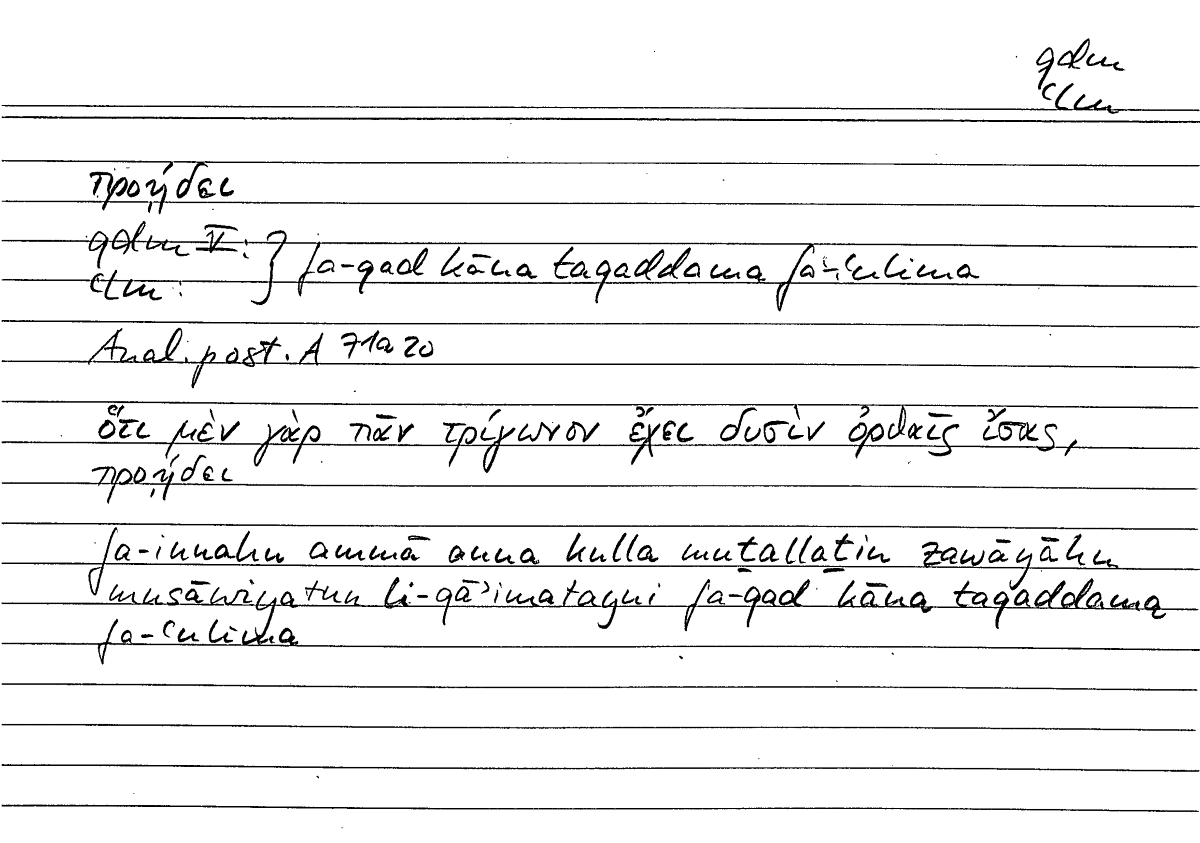 qdm
ʿlm
προῄδει
qdm V:
ʿlm:
} fa-qad kāna taqaddama fa-ʿulima
Anal. post. A 71a20
ὅτι μὲν γὰρ πᾶν τρίγωνον ἔχει δυσὶν ὀρθαῖς ἴσας,
προῄδει
fa-innahu ammā anna kulla muṯallaṯin zawāyāhu
musāwiyatun li-qāʾimatayni fa-qad kāna taqaddama
fa-ʿulima